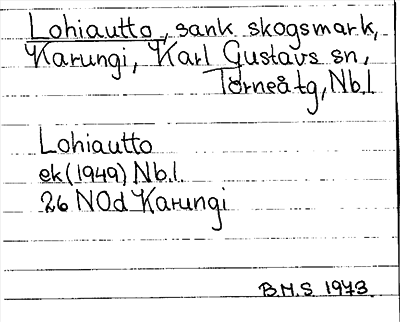 Lohiautto, sank skogsmark,
Karungi, Karl Gustavs sn,
Torneå tg, Nb.l
Lohiautto
ek (1949) Nb.l.
26 NOd Karungi
B.M.S 1973.